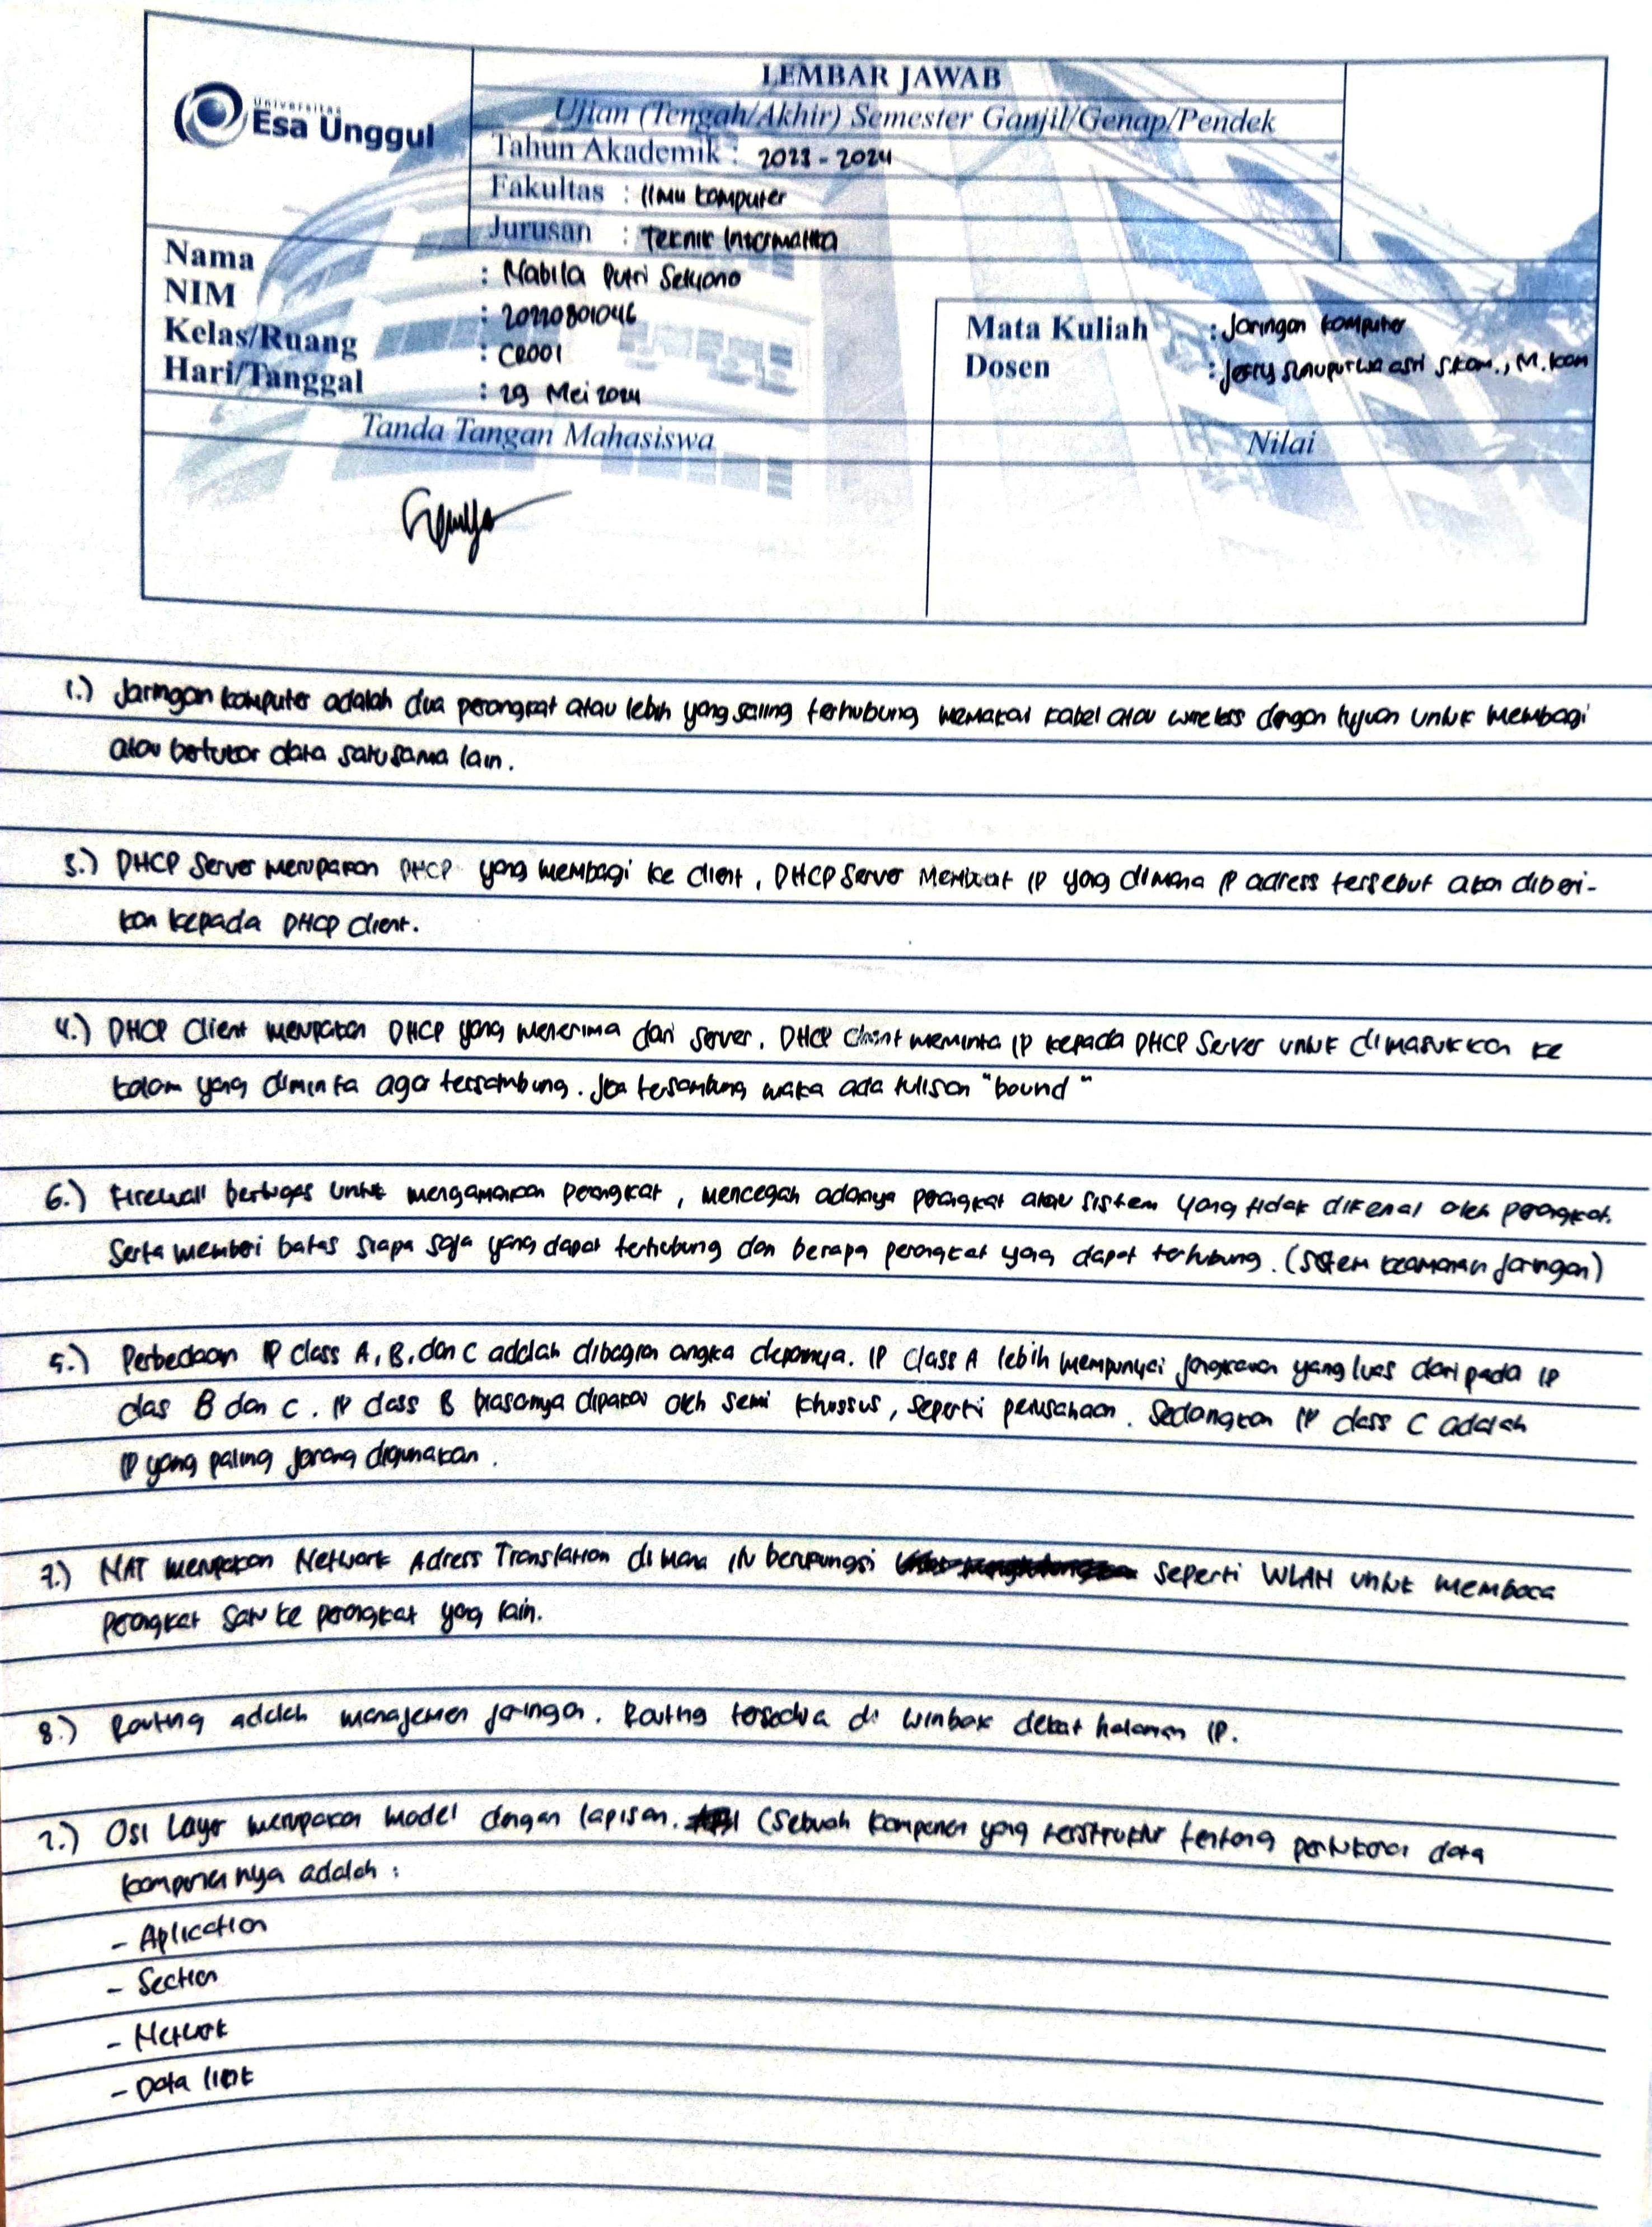 Universitas
Esa Unggul
LEMBAR JAWAB
Ujian (Tengah/Akhir) Semester Ganjil/Genap/Pendek
Tahun Akademik : 2023 - 2024
Fakultas : Ilmu Komputer
Jurusan : Teknik Informatika
Nama : Nabila Putri Setyono
NIM : 20220801046
Kelas/Ruang : CR001
Hari/Tanggal : 29 Mei 2024
Mata Kuliah : Jaringan Komputer
Dosen : Jerry asri S.Kom., M.Kom
Tanda Tangan Mahasiswa
Nilai
1.) Jaringan komputer adalah dua perangkat atau lebih yang saling terhubung memakai kabel atau wireless dengan tujuan untuk membagi
atau bertukar data satu sama lain.
3.) DHCP Server merupakan DHCP yang membagi ke client, DHCP Server membuat IP yang dimana IP adress tersebut akan diberi-
kan kepada DHCP client.
4.) DHCP Client merupakan DHCP yang menerima dari server. DHCP client meminta IP kepada DHCP Server untuk dimasukkan ke
kolom yang diminta agar tersambung. Jika tersambung maka ada tulisan "bound"
6.) Firewall bertugas untuk mengamankan perangkat, mencegah adanya perangkat atau sistem yang tidak dikenal oleh perangkat.
Serta memberi batas siapa saja yang dapat terhubung dan berapa perangkat yang dapat terhubung. (Sistem keamanan jaringan)
5.) Perbedaan IP class A, B, dan C adalah dibagian angka depannya. IP Class A lebih mempunyai jangkauan yang luas daripada IP
clas B dan C. IP class B biasanya dipakai oleh semi khussus, seperti perusahaan. Sedangkan IP class C adalah
IP yang paling jarang digunakan.
7.) NAT merupakan Network Adress Translation dimana itu berfungsi seperti WLAN untuk membaca
perangkat satu ke perangkat yang lain.
8.) Routing adalah manajemen jaringan. Routing tersedia di winbox dekat halaman IP.
2.) Osi Layer merupakan model dengan lapisan. (Sebuah komponen yang terstruktur tentang pertukaran data
komponennya adalah :
- Aplication
- Section
- Network
- Data link